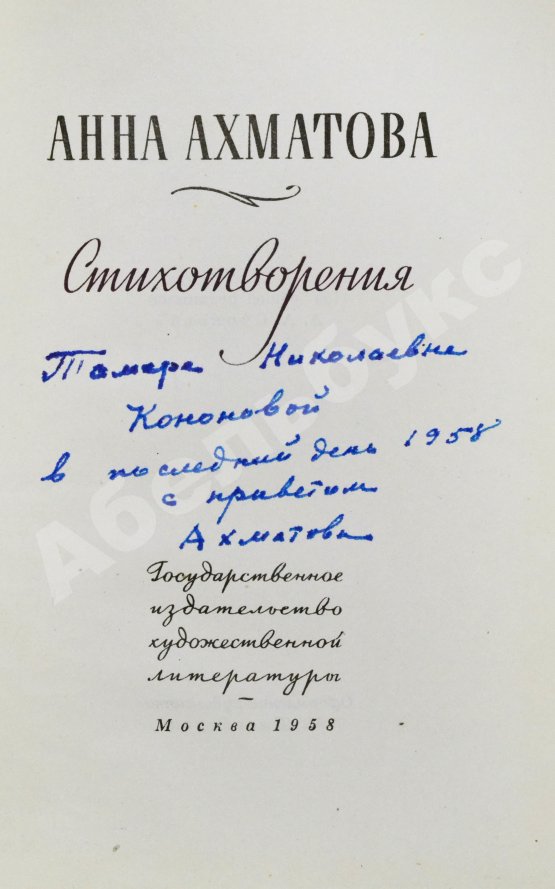 АННА АХМАТОВА
Стихотворения
Тамаре Николаевне
Кононовой
в последний день 1958
с приветом
Ахматова
Государственное
издательство
художественной
литературы
Москва 1958
Абельбукс